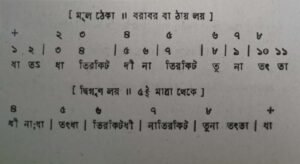 [ মূল ঠেকা ॥ বরাবর বা ঠায় লয় ]
+ ২ ৩ ৪ ৫ ৬ ৭ ৮
১ ২ | ৩ ৪ | ৫ ৬ | ৭ | ৮ | ৯ | ১০ ১১
ধা তৎ ধা তিরকিট ধী না তিরকিট তু না তৎ তা
[ দ্বিগুন লয় ॥ ৫ই মাত্রা থেকে ]
৪ ৫ ৬ ৭ ৮ +
ধী না;ধা | তৎধা | তিরকিটধী | নাতিরকিট | তুনা তৎতা | ধা